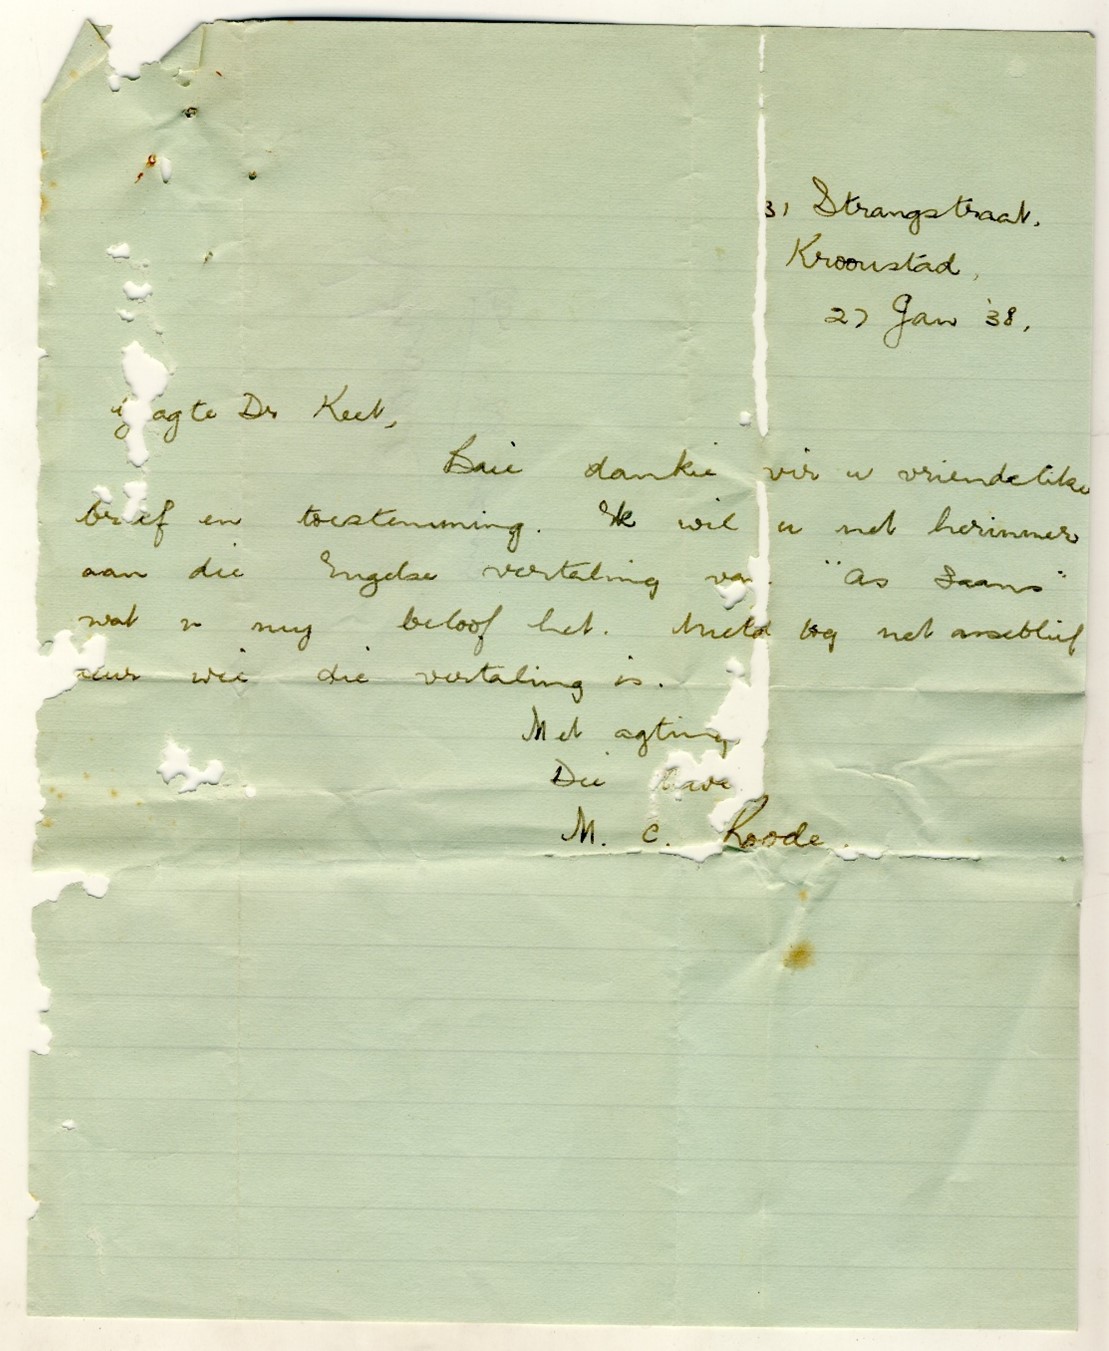 31 Strangstraat,
Kroonstad,
27 Jan '38,
Geagte Dr Keet,
Baie dankie vir u vriendelike
brief en toestemming. Ek wil u net herinner
aan die Engelse vertaling van "As Saans"
wat u my beloof het. Meld tog net asseblief
deur wie die vertaling is.
Met agting
Die
M. C. Roode.